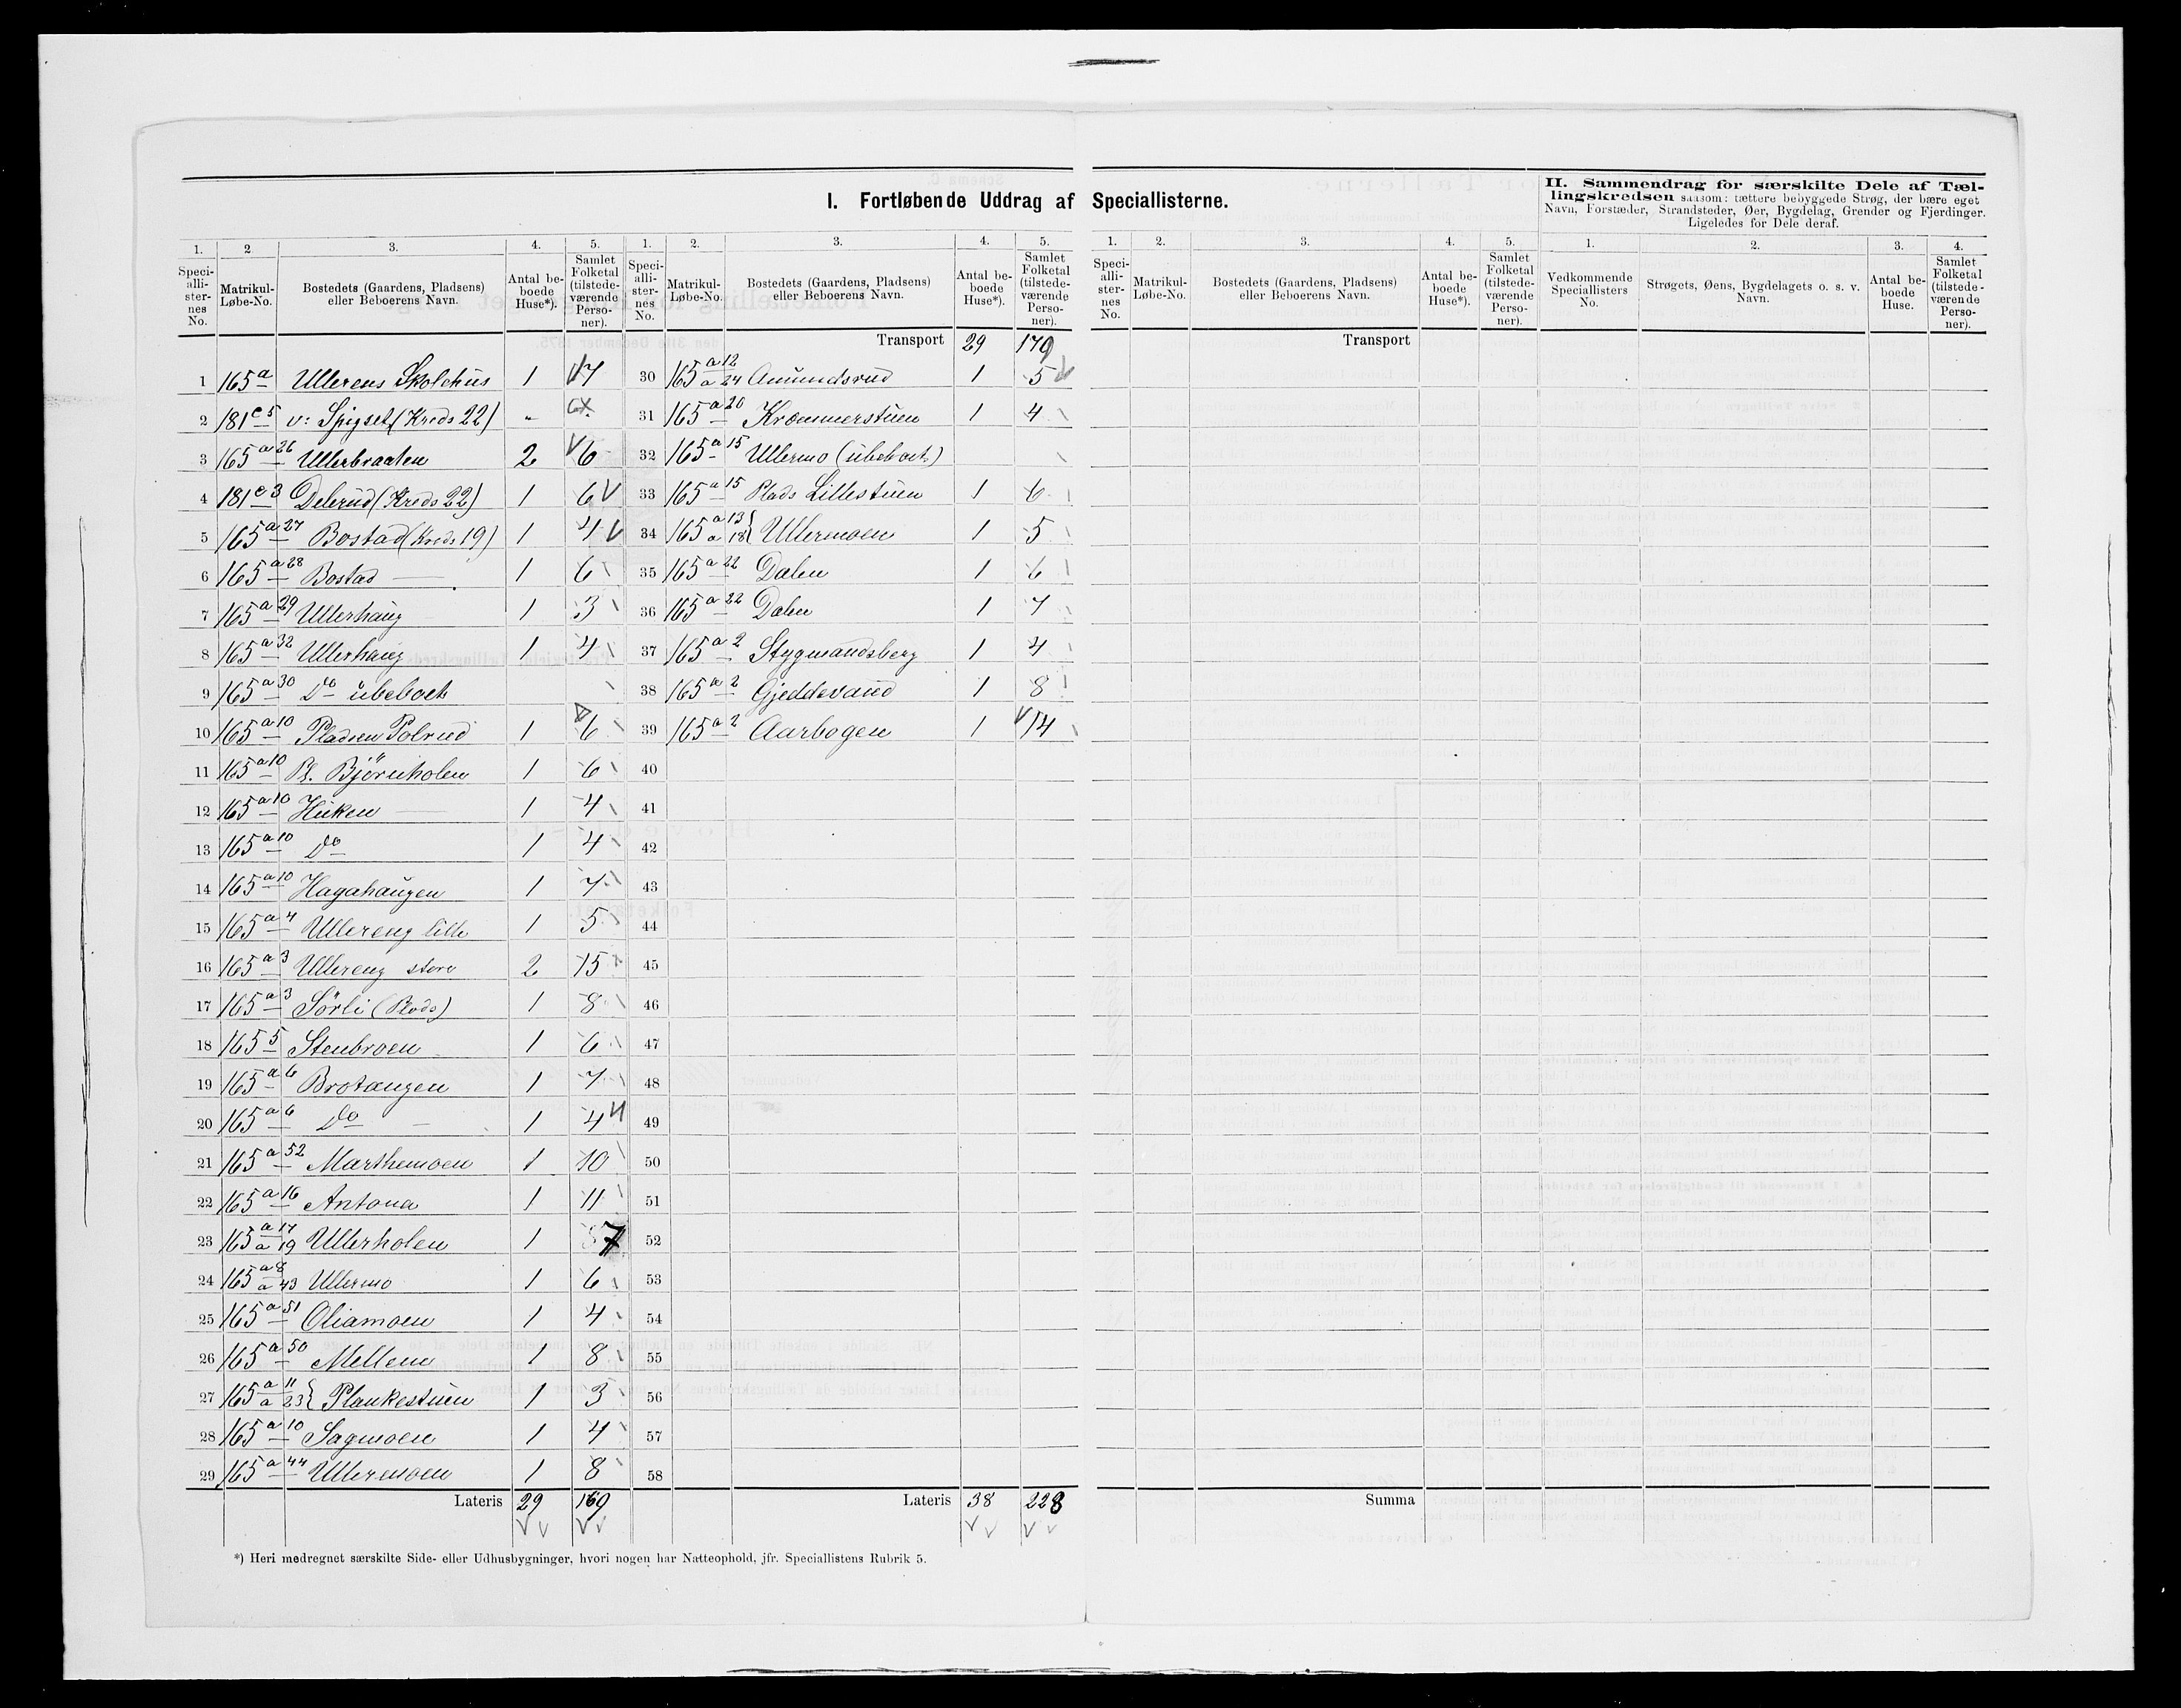 I. Fortløbende Uddrag af Speciallisterne.
II. Sammendrag for særskilte Dele af Tæl-
lingskredsen saasom: tættere bebyggede Strøg, der bære eget
Navn, Forstæder, Strandsteder, Øer, Bygdelag, Grender og Fjerdinger.
Ligeledes for Dele deraf.
1. 2. 3. 4. 5. 1. 2. 3. 4. 5. 1. 2. 3. 4. 5. 1. 2. 3. 4.
Speci-alli-ster-nes No. Matrikul-Løbe-No. Bostedets (Gaardens, Pladsens) eller Beboerens Navn. Antal be-boede Huse*). Samlet Folketal (tilstede-værende Perso-ner).
Speci-alli-ster-nes No. Matrikul-Løbe-No. Bostedets (Gaardens, Pladsens) eller Beboerens Navn. Antal be-boede Huse*). Samlet Folketal (tilstede-værende Perso-ner).
Speci-alli-ster-nes No. Matrikul-Løbe-No. Bostedets (Gaardens, Pladsens) eller Beboerens Navn. Antal be-boede Huse*). Samlet Folketal (tilstede-værende Perso-ner).
Vedkommende Speciallisters No. Strøgets, Øens, Bygdelagets o. s. v. Navn. Antal be-boede Huse. Samlet Folketal (tilstede-værende Perso-ner).
Transport 29 170
Transport
1 165 a Ullerens Skolehus 1 7
2 181 c 5 v: Spigset (Kreds 22) - x
3 165 a 26 Ullerbraaten 2 6
4 181 c 3 Delerud (Kreds 22) 1 6
5 165 a 27 Bostad (Kreds 19) 1 4
6 165 a 28 Bostad — 1 6
7 165 a 29 Ullerhaug 1 3
8 165 a 32 Ullerhaug 1 4
9 165 a 30 Do ubeboet
10 165 a 10 Pladsen Polrud 1 6
11 165 a 10 Pl. Björnholen 1 6
12 165 a 10 Huken — 1 4
13 165 a 10 Do 1 4
14 165 a 10 Hagahaugen 1 7
15 165 a 4 Ullereng lille 1 5
16 165 a 3 Ullereng store 2 15
17 165 a 3 Sörli (Plads) 1 8
18 165 5 Stenbroen 1 6
19 165 a 6 Brotangen 1 7
20 165 a 6 Do — 1 4
21 165 a 52 Marthemoen 1 10
22 165 a 16 Antona 1 11
23 165 a 17 a 19 Ullerholen 1 7
24 165 a 8 a 43 Ullermo 1 6
25 165 a 51 Oliamoen 1 4
26 165 a 50 Mellem 1 8
27 165 a 11 a 23 } Plankestuen 1 3
28 165 a 10 Sagmoen 1 4
29 165 a 44 Ullermoen 1 8
Lateris 29 169
30 165 a 12 a 24 Amundsrud 1 5
31 165 a 20 Krommerstuen 1 4
32 165 a 15 Ullermo (ubeboet)
33 165 a 15 Plads Lillestuen 1 6
34 165 a 13 a 18 } Ullermoen 1 5
35 165 a 22 Dalen 1 6
36 165 a 22 Dalen 1 7
37 165 a 2 Stygmandsberg 1 4
38 165 a 2 Gjeddevand 1 8
39 165 a 2 Aarbogen 1 14
40
41
42
43
44
45
46
47
48
49
50
51
52
53
54
55
56
57
58
Lateris 38 228
Summa
*) Heri medregnet særskilte Side- eller Udhusbygninger, hvori nogen har Natteophold, jfr. Speciallistens Rubrik 5.